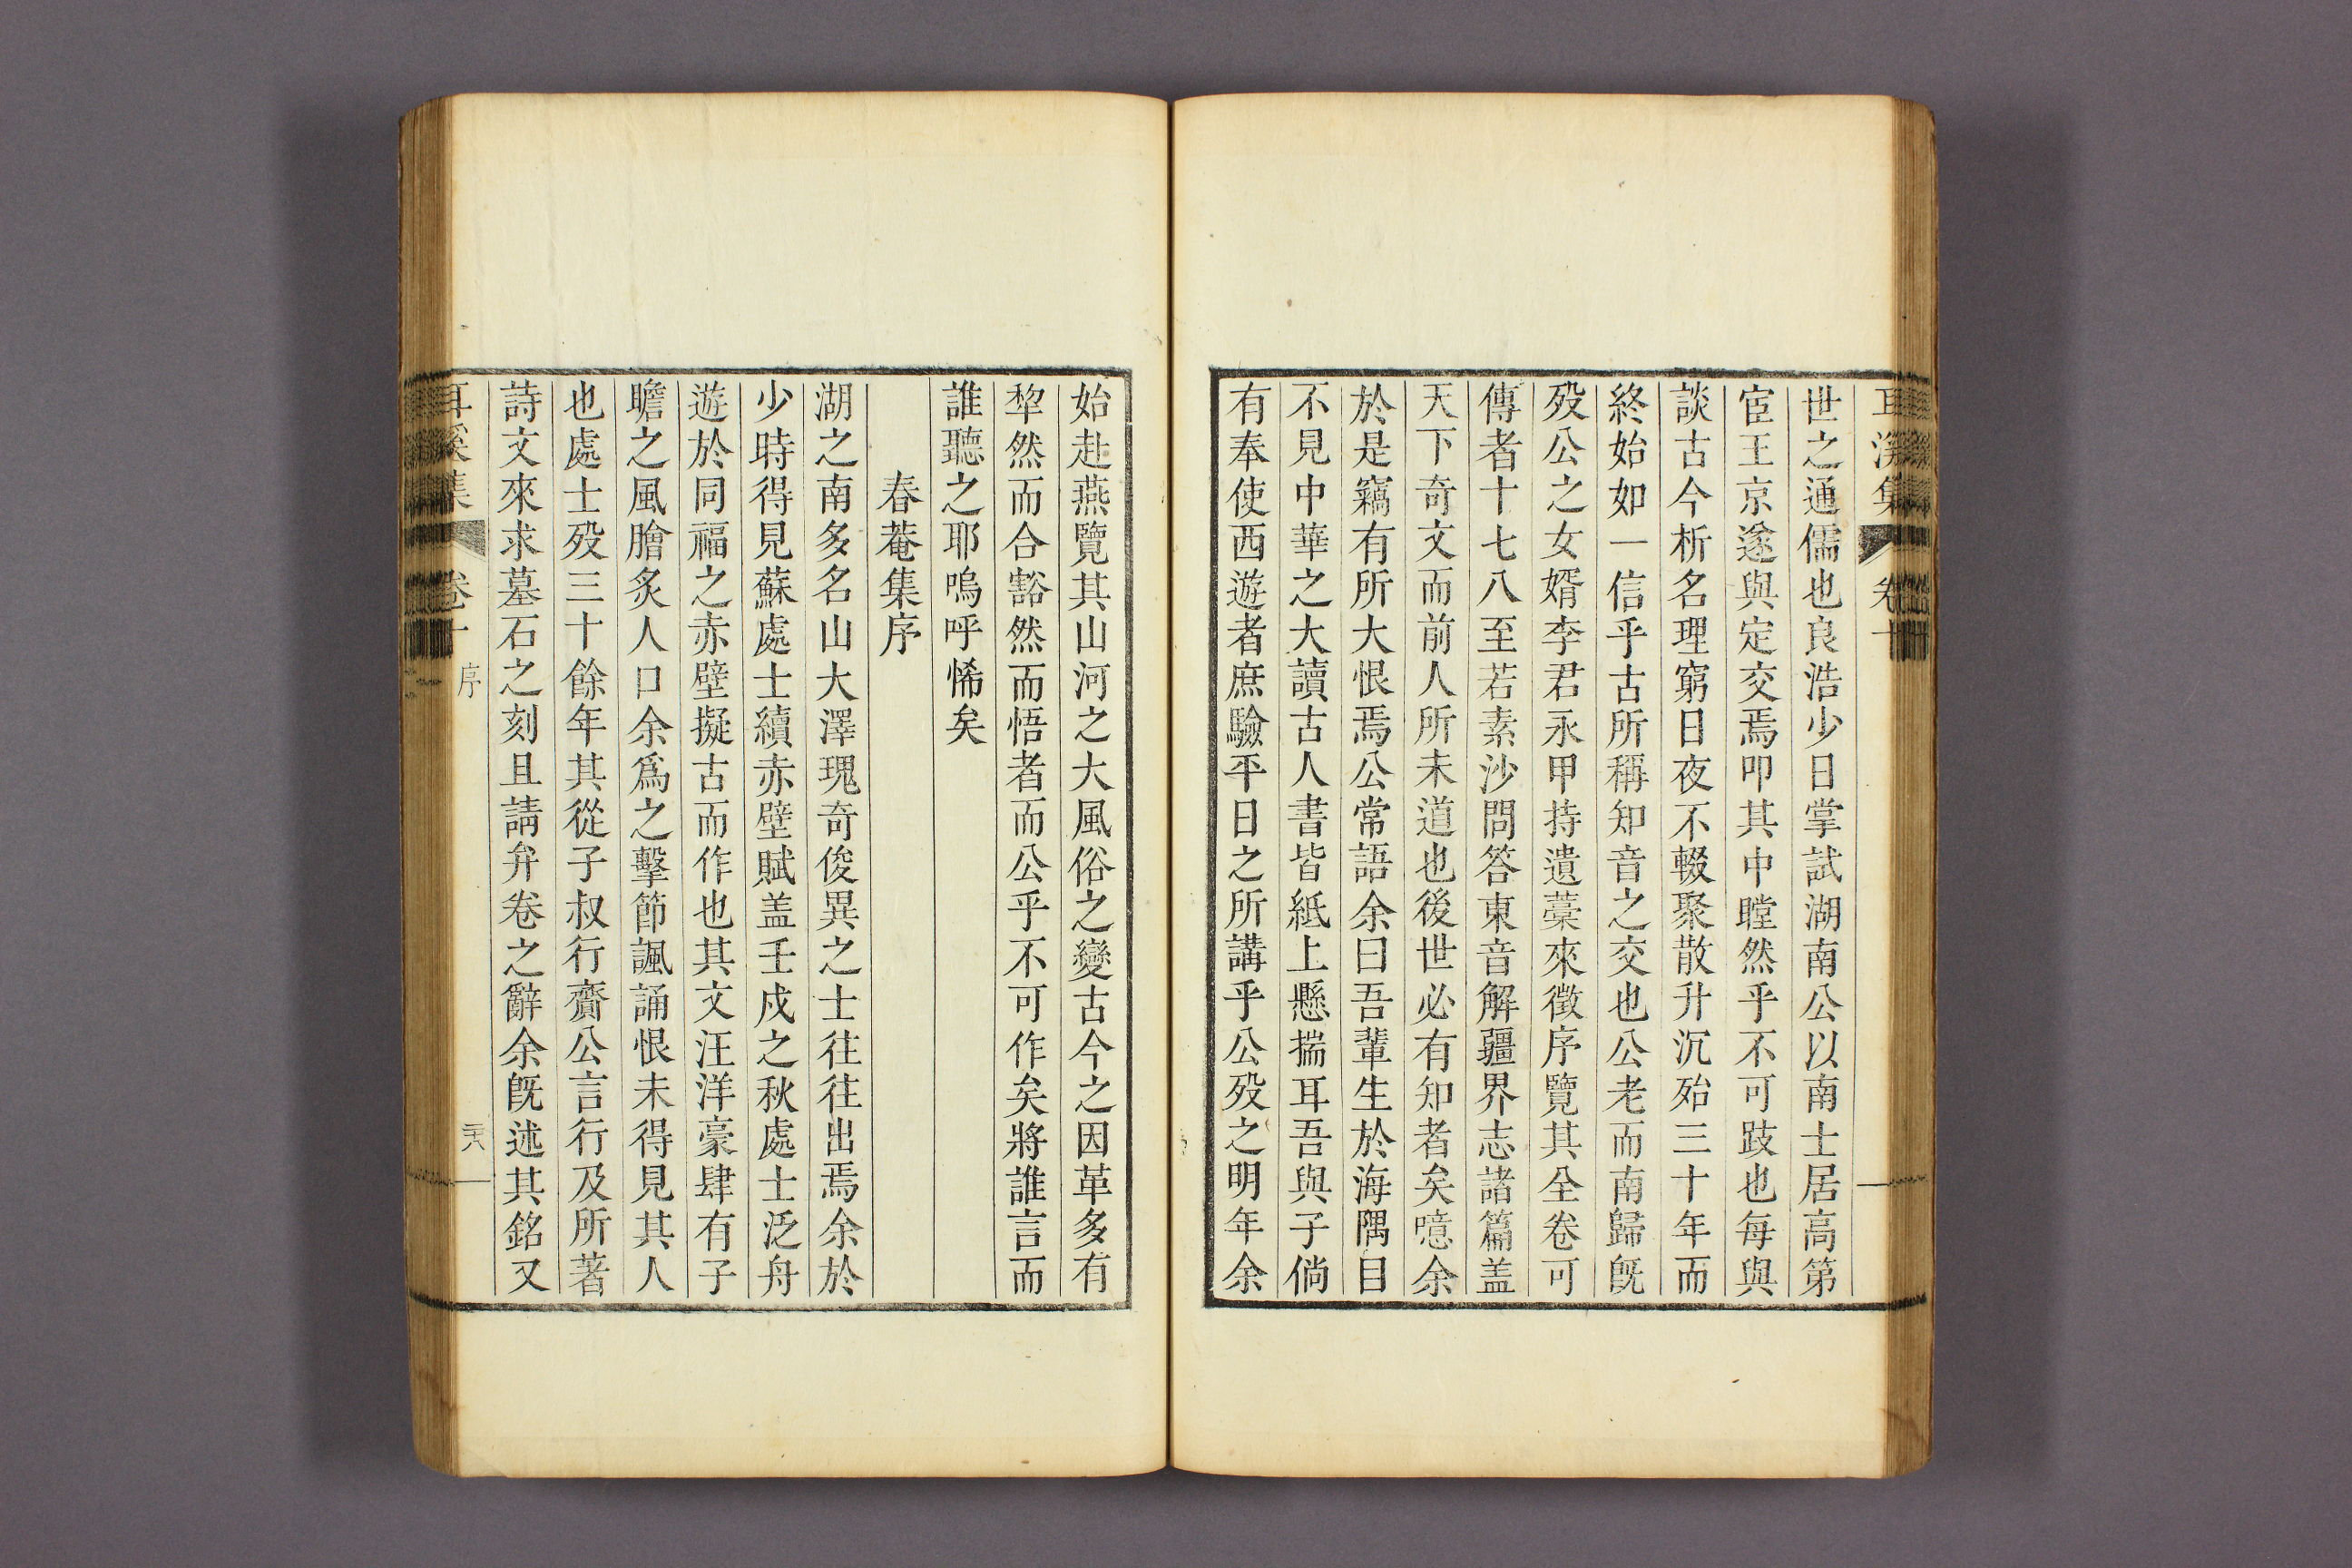 耳溪集 卷十
世之通儒也良浩少日掌試湖南公以南士居高第
宦王京遂與定交焉叩其中瞠然乎不可跂也每與
談古今析名理窮日夜不輟聚散升沉殆三十年而
終始如一信乎古所稱知音之交也公老而南歸旣
歿公之女婿李君永甲持遺藁來徵序覽其全卷可
傳者十七八至若素沙問答東音解疆界志諸篇盖
天下奇文而前人所未道也後世必有知者矣噫余
於是竊有所大恨焉公常語余曰吾輩生於海隅目
不見中華之大讀古人書皆紙上懸揣耳吾與子倘
有奉使西遊者庶驗平日之所講乎公歿之明年余
始赴燕覽其山河之大風俗之變古今之因革多有
犂然而合豁然而悟者而公乎不可作矣將誰言而
誰聽之耶嗚呼悕矣
春菴集序
湖之南多名山大澤瑰奇俊異之士往往出焉余於
少時得見蘇處士續赤壁賦盖壬戌之秋處士泛舟
遊於同福之赤壁擬古而作也其文汪洋豪肆有子
瞻之風膾炙人口余爲之擊節諷誦恨未得見其人
也處士歿三十餘年其從子叔行齎公言行及所著
詩文來求墓石之刻且請弁卷之辭余旣述其銘又
耳溪集 卷十 序 二十八